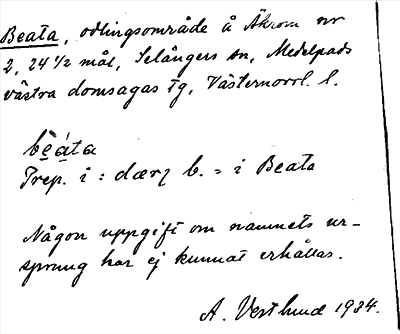 Beata, odlingsområde å Åkrom nr
2, 24 1/2 mål, Selångers sn, Medelpads
västra domsagas tg, Västernorrl. l.
bèáta
Prep. i : dær i b. = i Beata
Någon uppgift om namnets ur-
sprung har ej kunnat erhållas.
A. Vestlund 1934.